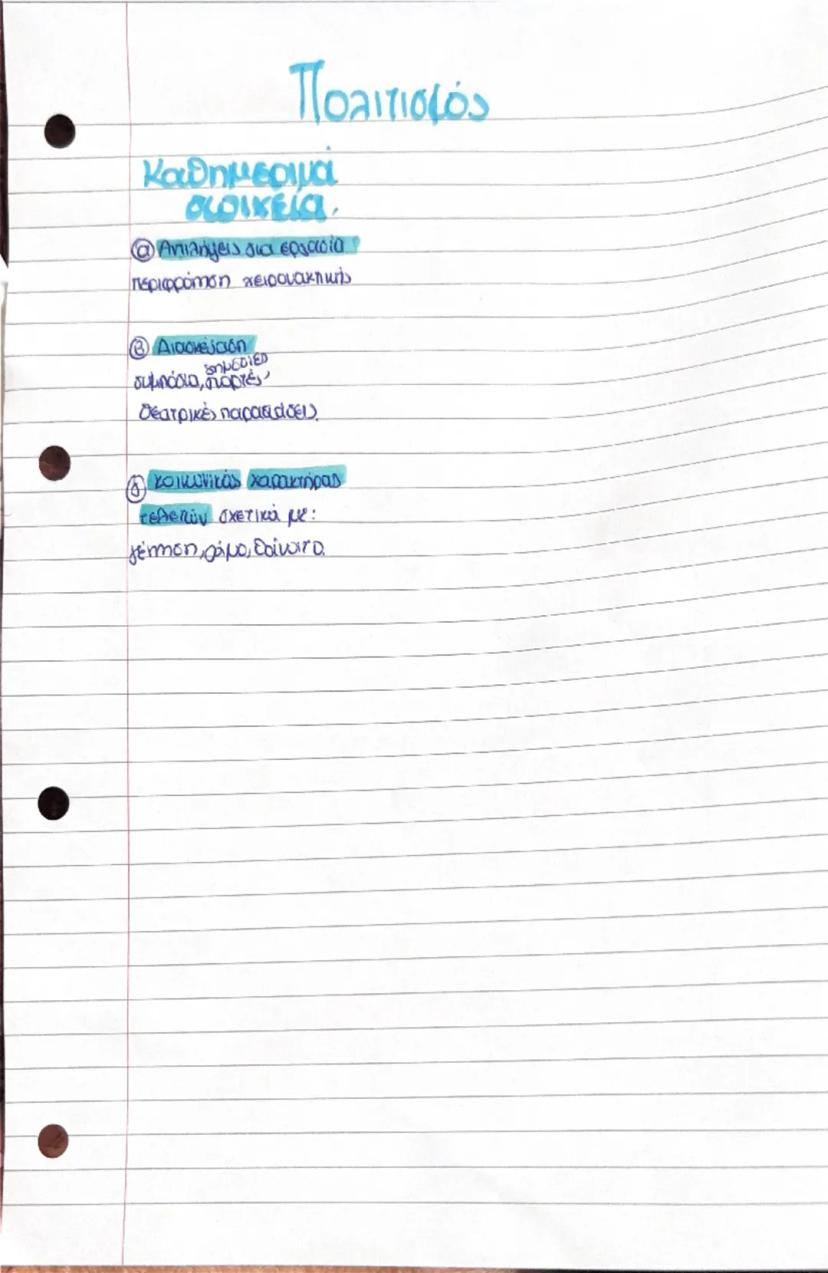 Πολιτισμός
Καθημερινά
στοιχεία.
α Αντιλήψεις για εργασία
περιφρόνηση χειρωνακτικής
Β Διασκέδαση
δημόσιες
συμπόσια, γιορτές,
θεατρικές παραστάσεις
κοινωνικός χαρακτήρας
τελετών σχετικά με:
γέννηση, γάμο, θάνατο.